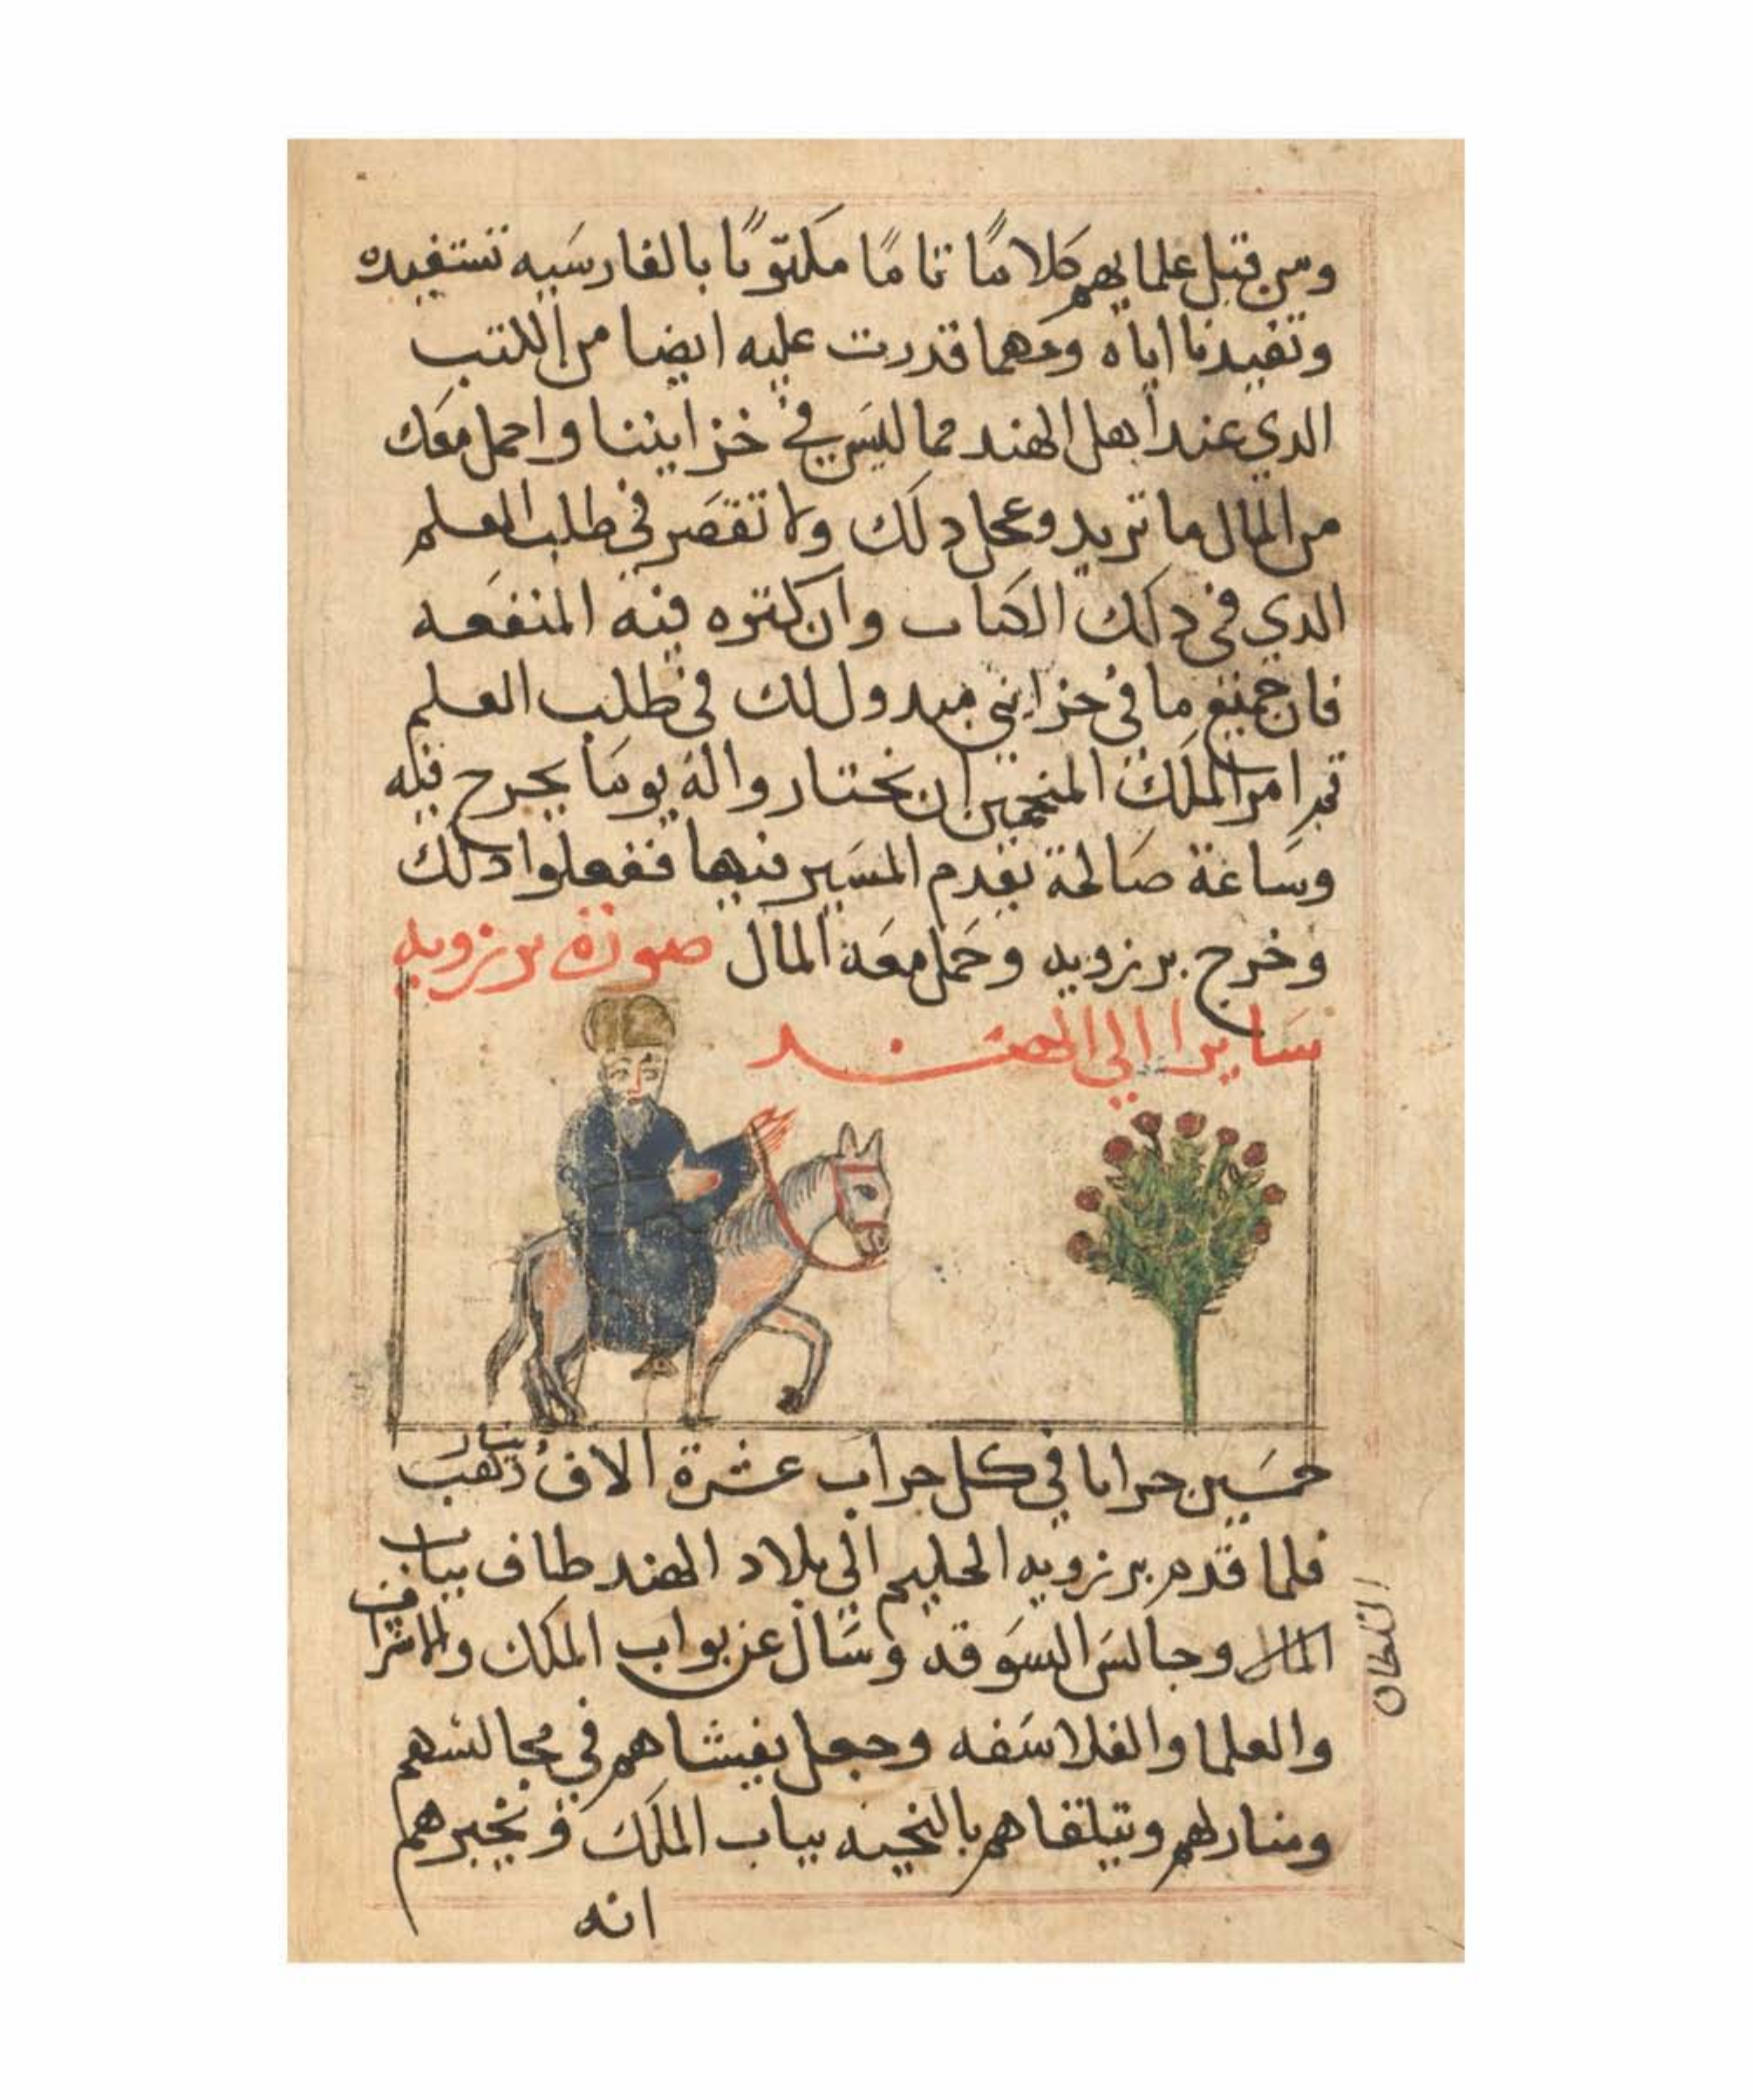 ومن قبل علمايهم كلامًا تامًا مكتوبًا بالفارسيه تستفيده
وتفيدنا اياه ومهما قدرت عليه ايضا من الكتب
الدي عند اهل الهند مما ليس في خزايننا واحمل معك
من المال ما تريد وعجل دلك ولا تقصر في طلب العلم
الدي في دلك الكتاب وان كتره فيه المنفعه
فان جميع ما في خزايني مبدول لك في طلب العلم
تم امر الملك المنجمين ان يختاروا له يوما يخرج فيه
وساعة صالحة يقدم المسير فيها ففعلوا دلك
وخرج برزويه وحمل معه المال صورة برزويه
سايرا الي الهند
خمسين جرابا في كل جراب عشرة الاف دينار دهب
فلما قدم برزويه الحليم الي بلاد الهند طاف بباب
المال وجالس السوقه وسال عن بواب الملك والاشراف
والعلما والفلاسفه وجعل يغشاهم في مجالسهم
ومنازلهم ويتلقاهم بالتحيه بباب الملك ويخبرهم
انه